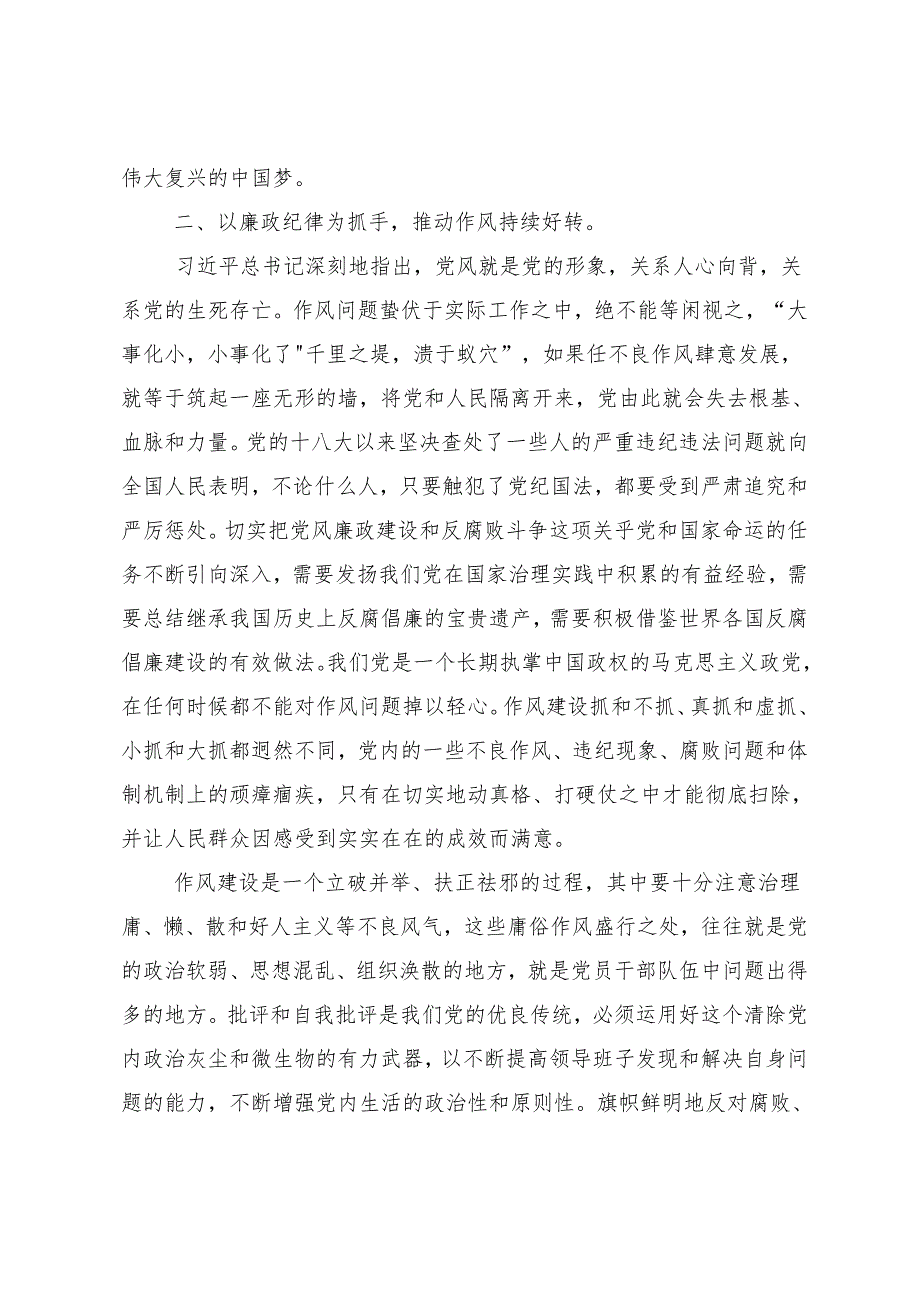 伟大复兴的中国梦。
二、以廉政纪律为抓手，推动作风持续好转。
习近平总书记深刻地指出，党风就是党的形象，关系人心向背，关
系党的生死存亡。作风问题蛰伏于实际工作之中，绝不能等闲视之，“大
事化小，小事化了"千里之堤，溃于蚁穴”，如果任不良作风肆意发展，
就等于筑起一座无形的墙，将党和人民隔离开来，党由此就会失去根基、
血脉和力量。党的十八大以来坚决查处了一些人的严重违纪违法问题就向
全国人民表明，不论什么人，只要触犯了党纪国法，都要受到严肃追究和
严厉惩处。切实把党风廉政建设和反腐败斗争这项关乎党和国家命运的任
务不断引向深入，需要发扬我们党在国家治理实践中积累的有益经验，需
要总结继承我国历史上反腐倡廉的宝贵遗产，需要积极借鉴世界各国反腐
倡廉建设的有效做法。我们党是一个长期执掌中国政权的马克思主义政党，
在任何时候都不能对作风问题掉以轻心。作风建设抓和不抓、真抓和虚抓、
小抓和大抓都迥然不同，党内的一些不良作风、违纪现象、腐败问题和体
制机制上的顽瘴痼疾，只有在切实地动真格、打硬仗之中才能彻底扫除，
并让人民群众因感受到实实在在的成效而满意。
作风建设是一个立破并举、扶正祛邪的过程，其中要十分注意治理
庸、懒、散和好人主义等不良风气，这些庸俗作风盛行之处，往往就是党
的政治软弱、思想混乱、组织涣散的地方，就是党员干部队伍中问题出得
多的地方。批评和自我批评是我们党的优良传统，必须运用好这个清除党
内政治灰尘和微生物的有力武器，以不断提高领导班子发现和解决自身问
题的能力，不断增强党内生活的政治性和原则性。旗帜鲜明地反对腐败、